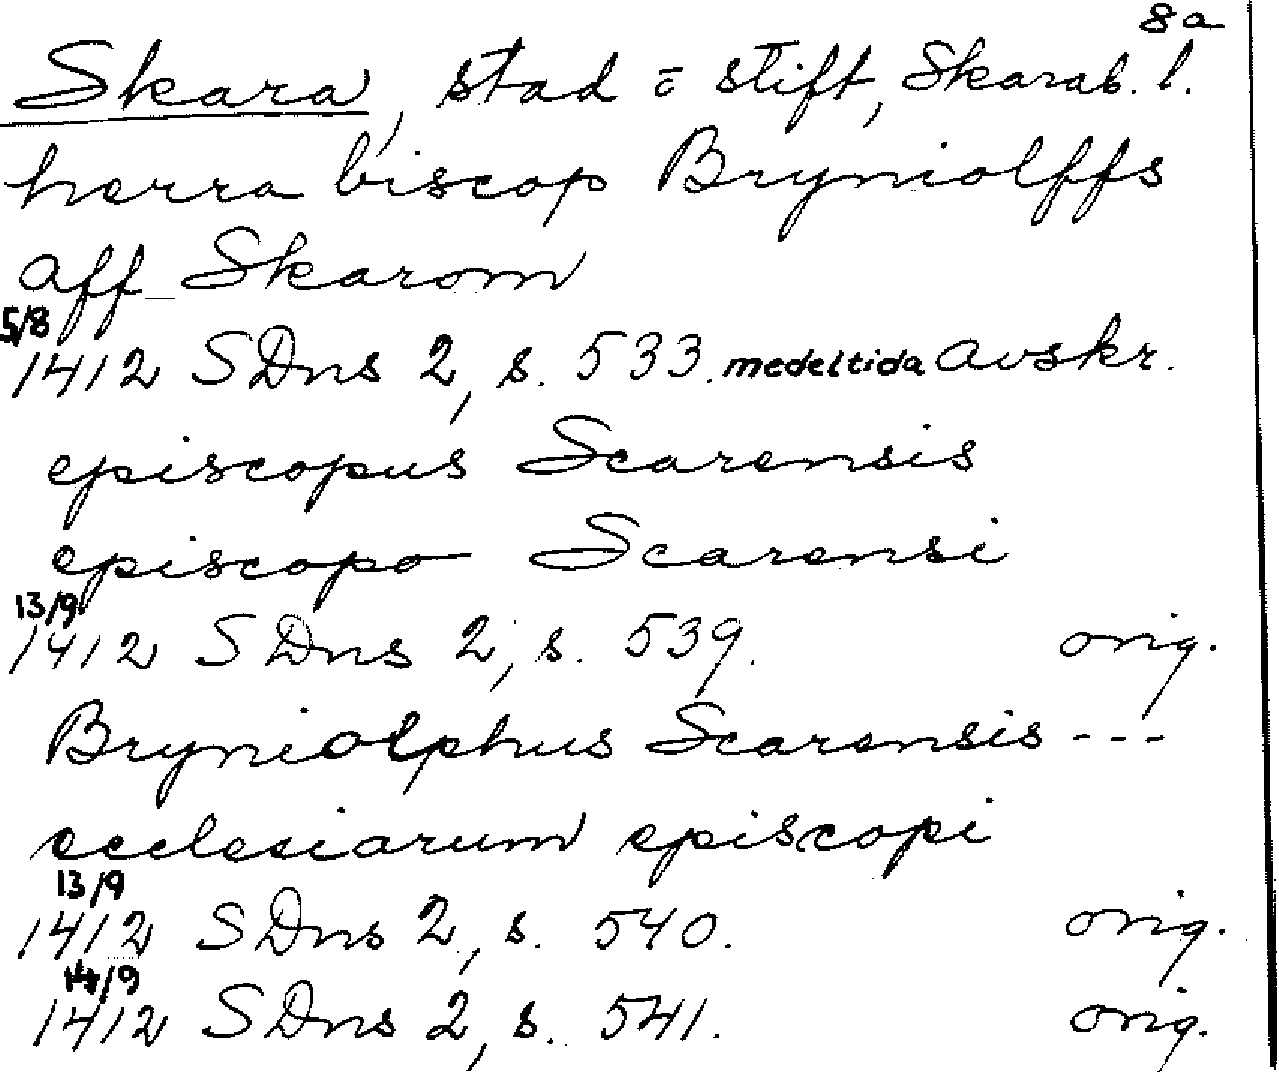 8a
Skara, stad o stift, Skarab. l.
herra biscop Bryniolffs
aff Skarom
5/8
1412 SDns 2, s. 533. medeltida avskr.
episcopus Scarensis
episcopo Scarensi
13/9
1412 SDns 2, s. 539. orig.
Bryniolphus Scarensis ---
ecclesiarum episcopi
13/9
1412 SDns 2, s. 540. orig.
14/9
1412 SDns 2, s. 541. orig.